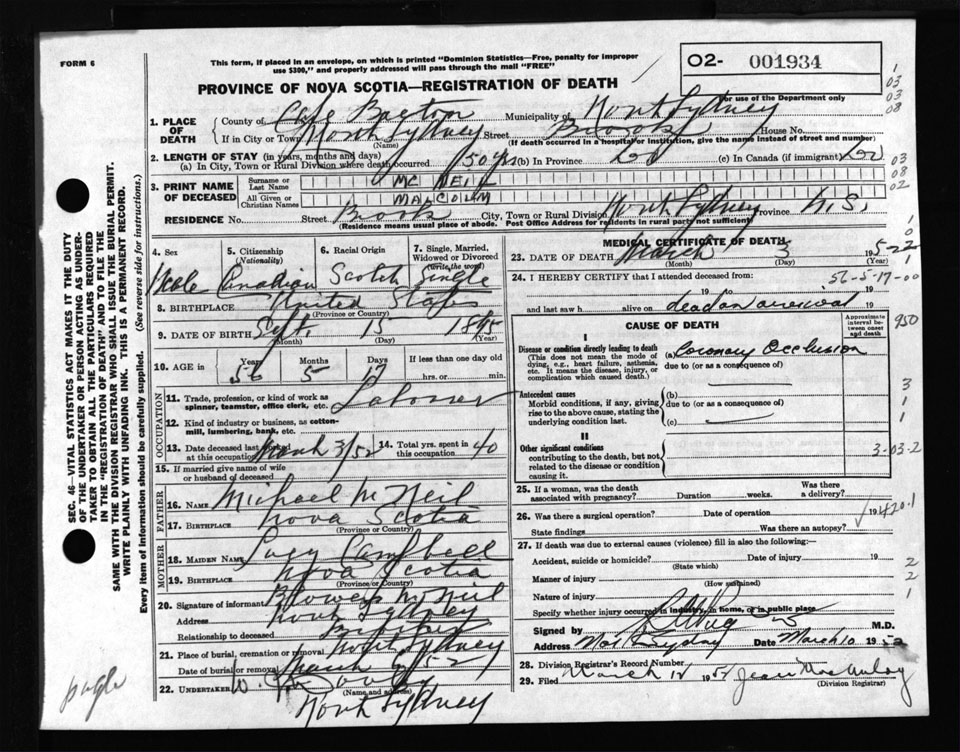 FORM 6
This form, if placed in an envelope, on which is printed "Dominion Statistics—Free, penalty for improper
use $300," and properly addressed will pass through the mail "FREE"
O2- 001934
PROVINCE OF NOVA SCOTIA—REGISTRATION OF DEATH
For use of the Department only
1. PLACE OF DEATH { County of Cape Breton Municipality of North Sydney
If in City or Town North Sydney Street Brook House No.
(Name) (If death occurred in a hospital or institution, give the name instead of street and number)
2. LENGTH OF STAY (in years, months and days)
(a) In City, Town or Rural Division where death occurred 50 yrs (b) In Province do (c) In Canada (if immigrant) do
3. PRINT NAME OF DECEASED { Surname or Last Name MC NEIL
All Given or Christian Names MALCOLM
RESIDENCE No. Street Brook City, Town or Rural Division North Sydney Province N.S.
(Residence means usual place of abode. Post Office Address for residents in rural parts not sufficient)
4. Sex Male
5. Citizenship (Nationality) Canadian
6. Racial Origin Scotch
7. Single, Married, Widowed or Divorced (Write the word) Single
8. BIRTHPLACE United States
(Province or Country)
9. DATE OF BIRTH Sept. 15 1895
(Month) (Day) (Year)
10. AGE in Years 56 Months 5 Days 17 If less than one day old
hrs. or min.
OCCUPATION
11. Trade, profession, or kind of work as
spinner, teamster, office clerk, etc. Laborer
12. Kind of industry or business, as cotton-
mill, lumbering, bank, etc.
13. Date deceased last worked
at this occupation March 3/52 14. Total yrs. spent in
this occupation 40
15. If married give name of wife
or husband of deceased
FATHER
16. NAME Michael McNeil
17. BIRTHPLACE Nova Scotia
(Province or Country)
MOTHER
18. MAIDEN NAME Lucy Campbell
19. BIRTHPLACE Nova Scotia
(Province/or Country)
20. Signature of informant McNeil
Address North Sydney
Relationship to deceased Brother
21. Place of burial, cremation or removal North Sydney
Date of burial or removal March 52
22. UNDERTAKER
(Name and address)
North Sydney
MEDICAL CERTIFICATE OF DEATH
23. DATE OF DEATH March 3 1952
(Month) (Day) (Year)
24. I HEREBY CERTIFY that I attended deceased from: 56-5-17-00
19 to 19
and last saw h alive on dead on arrival 19
CAUSE OF DEATH
Approximate interval between onset and death
I
Disease or condition directly leading to death
(This does not mean the mode of
dying, e.g., heart failure, asthenia,
etc. It means the disease, injury, or
complication which caused death.)
(a) Coronary Occlusion
due to (or as a consequence of)
Antecedent causes
Morbid conditions, if any, giving
rise to the above cause, stating the
underlying condition last.
(b)
due to (or as a consequence of)
(c)
II
Other significant conditions
contributing to the death, but not
related to the disease or condition
causing it.
25. If a woman, was the death
associated with pregnancy? Duration weeks. Was there
a delivery?
26. Was there a surgical operation? Date of operation 19
State findings Was there an autopsy?
420.1
27. If death was due to external causes (violence) fill in also the following:—
Accident, suicide or homicide? Date of injury 19
(State which)
Manner of injury
(How sustained)
Nature of injury
Specify whether injury occurred in industry, in home, or in public place
Signed by M.D.
Address Date March 10 1952
28. Division Registrar's Record Number
29. Filed March 1952 Jean
(Division Registrar)
SEC. 46—VITAL STATISTICS ACT MAKES IT THE DUTY
OF THE UNDERTAKER OR PERSON ACTING AS UNDER-
TAKER TO OBTAIN ALL THE PARTICULARS REQUIRED
IN THE "REGISTRATION OF DEATH" AND TO FILE THE
SAME WITH THE DIVISION REGISTRAR WHO SHALL ISSUE THE BURIAL PERMIT.
WRITE PLAINLY WITH UNFADING INK. THIS IS A PERMANENT RECORD.
Every item of information should be carefully supplied. (See reverse side for instructions.)
1
03
03
08
03
08
02
950
3
1
1
3-03-2
2
2
1